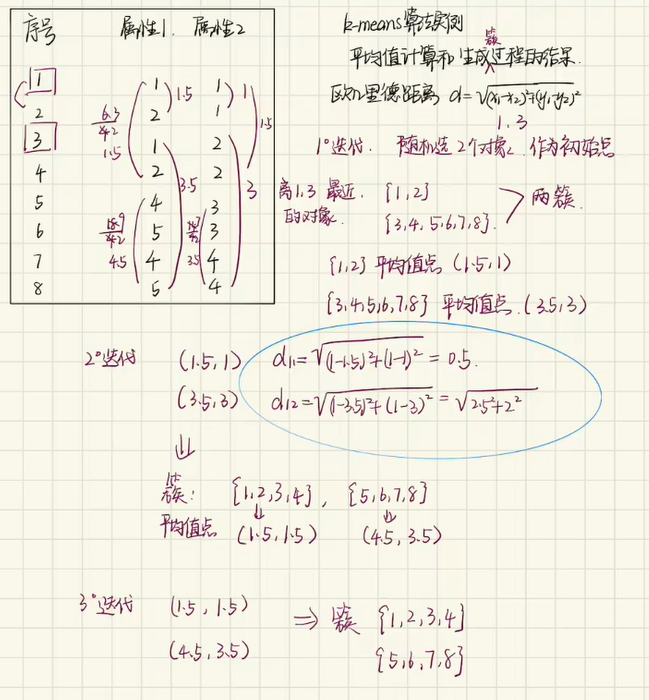 序号 属性1. 属性2
1 1 1
2 2 1
3 1 2
4 2 2
5 4 3
6 5 3
7 4 4
8 5 4
1.5 1
1.5
3.5 3
6.3
4.2
1.5
18.9
4.2
4.5
3.5
k-means算法实例
平均值计算和生成簇过程的结果.
欧几里德距离 d=√(x₁-x₂)²+(y₁-y₂)²
1.3
1°迭代. 随机选2个对象. 作为初始点
离1.3 最近 {1,2}
的对象. {3,4,5,6,7,8}. 两簇.
{1,2} 平均值点 (1.5,1)
{3,4,5,6,7,8} 平均值点.(3.5,3)
2°迭代 (1.5,1) d₁₁=√(1-1.5)²+(1-1)² = 0.5.
(3.5,3) d₁₂=√(1-3.5)²+(1-3)² = √2.5²+2²
簇: {1,2,3,4}, {5,6,7,8}
平均值点 (1.5,1.5) (4.5,3.5)
3°迭代 (1.5,1.5) ⇒ 簇 {1,2,3,4}
(4.5,3.5) {5,6,7,8}